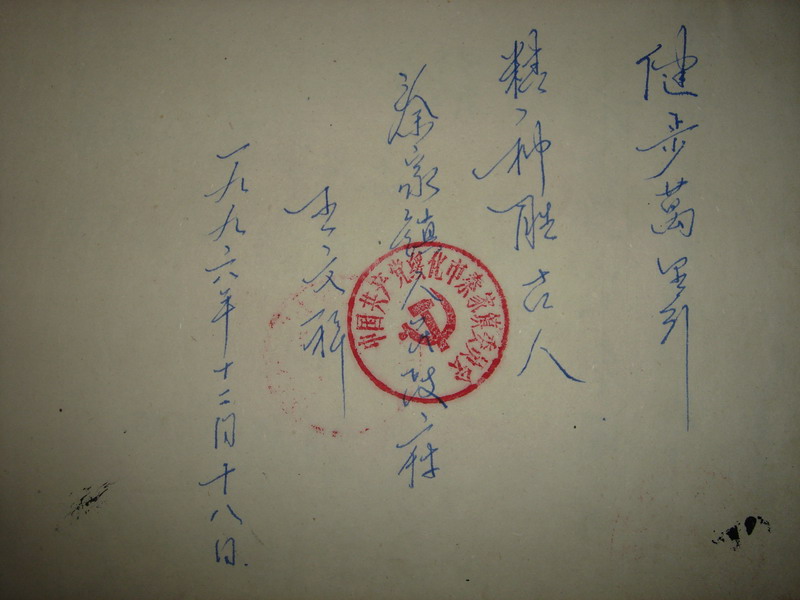 健步萬里行
精神胜古人
秦家镇人民政府
王文科
一九九六年十二月十八日
中国共产党绥化市秦家镇委员会